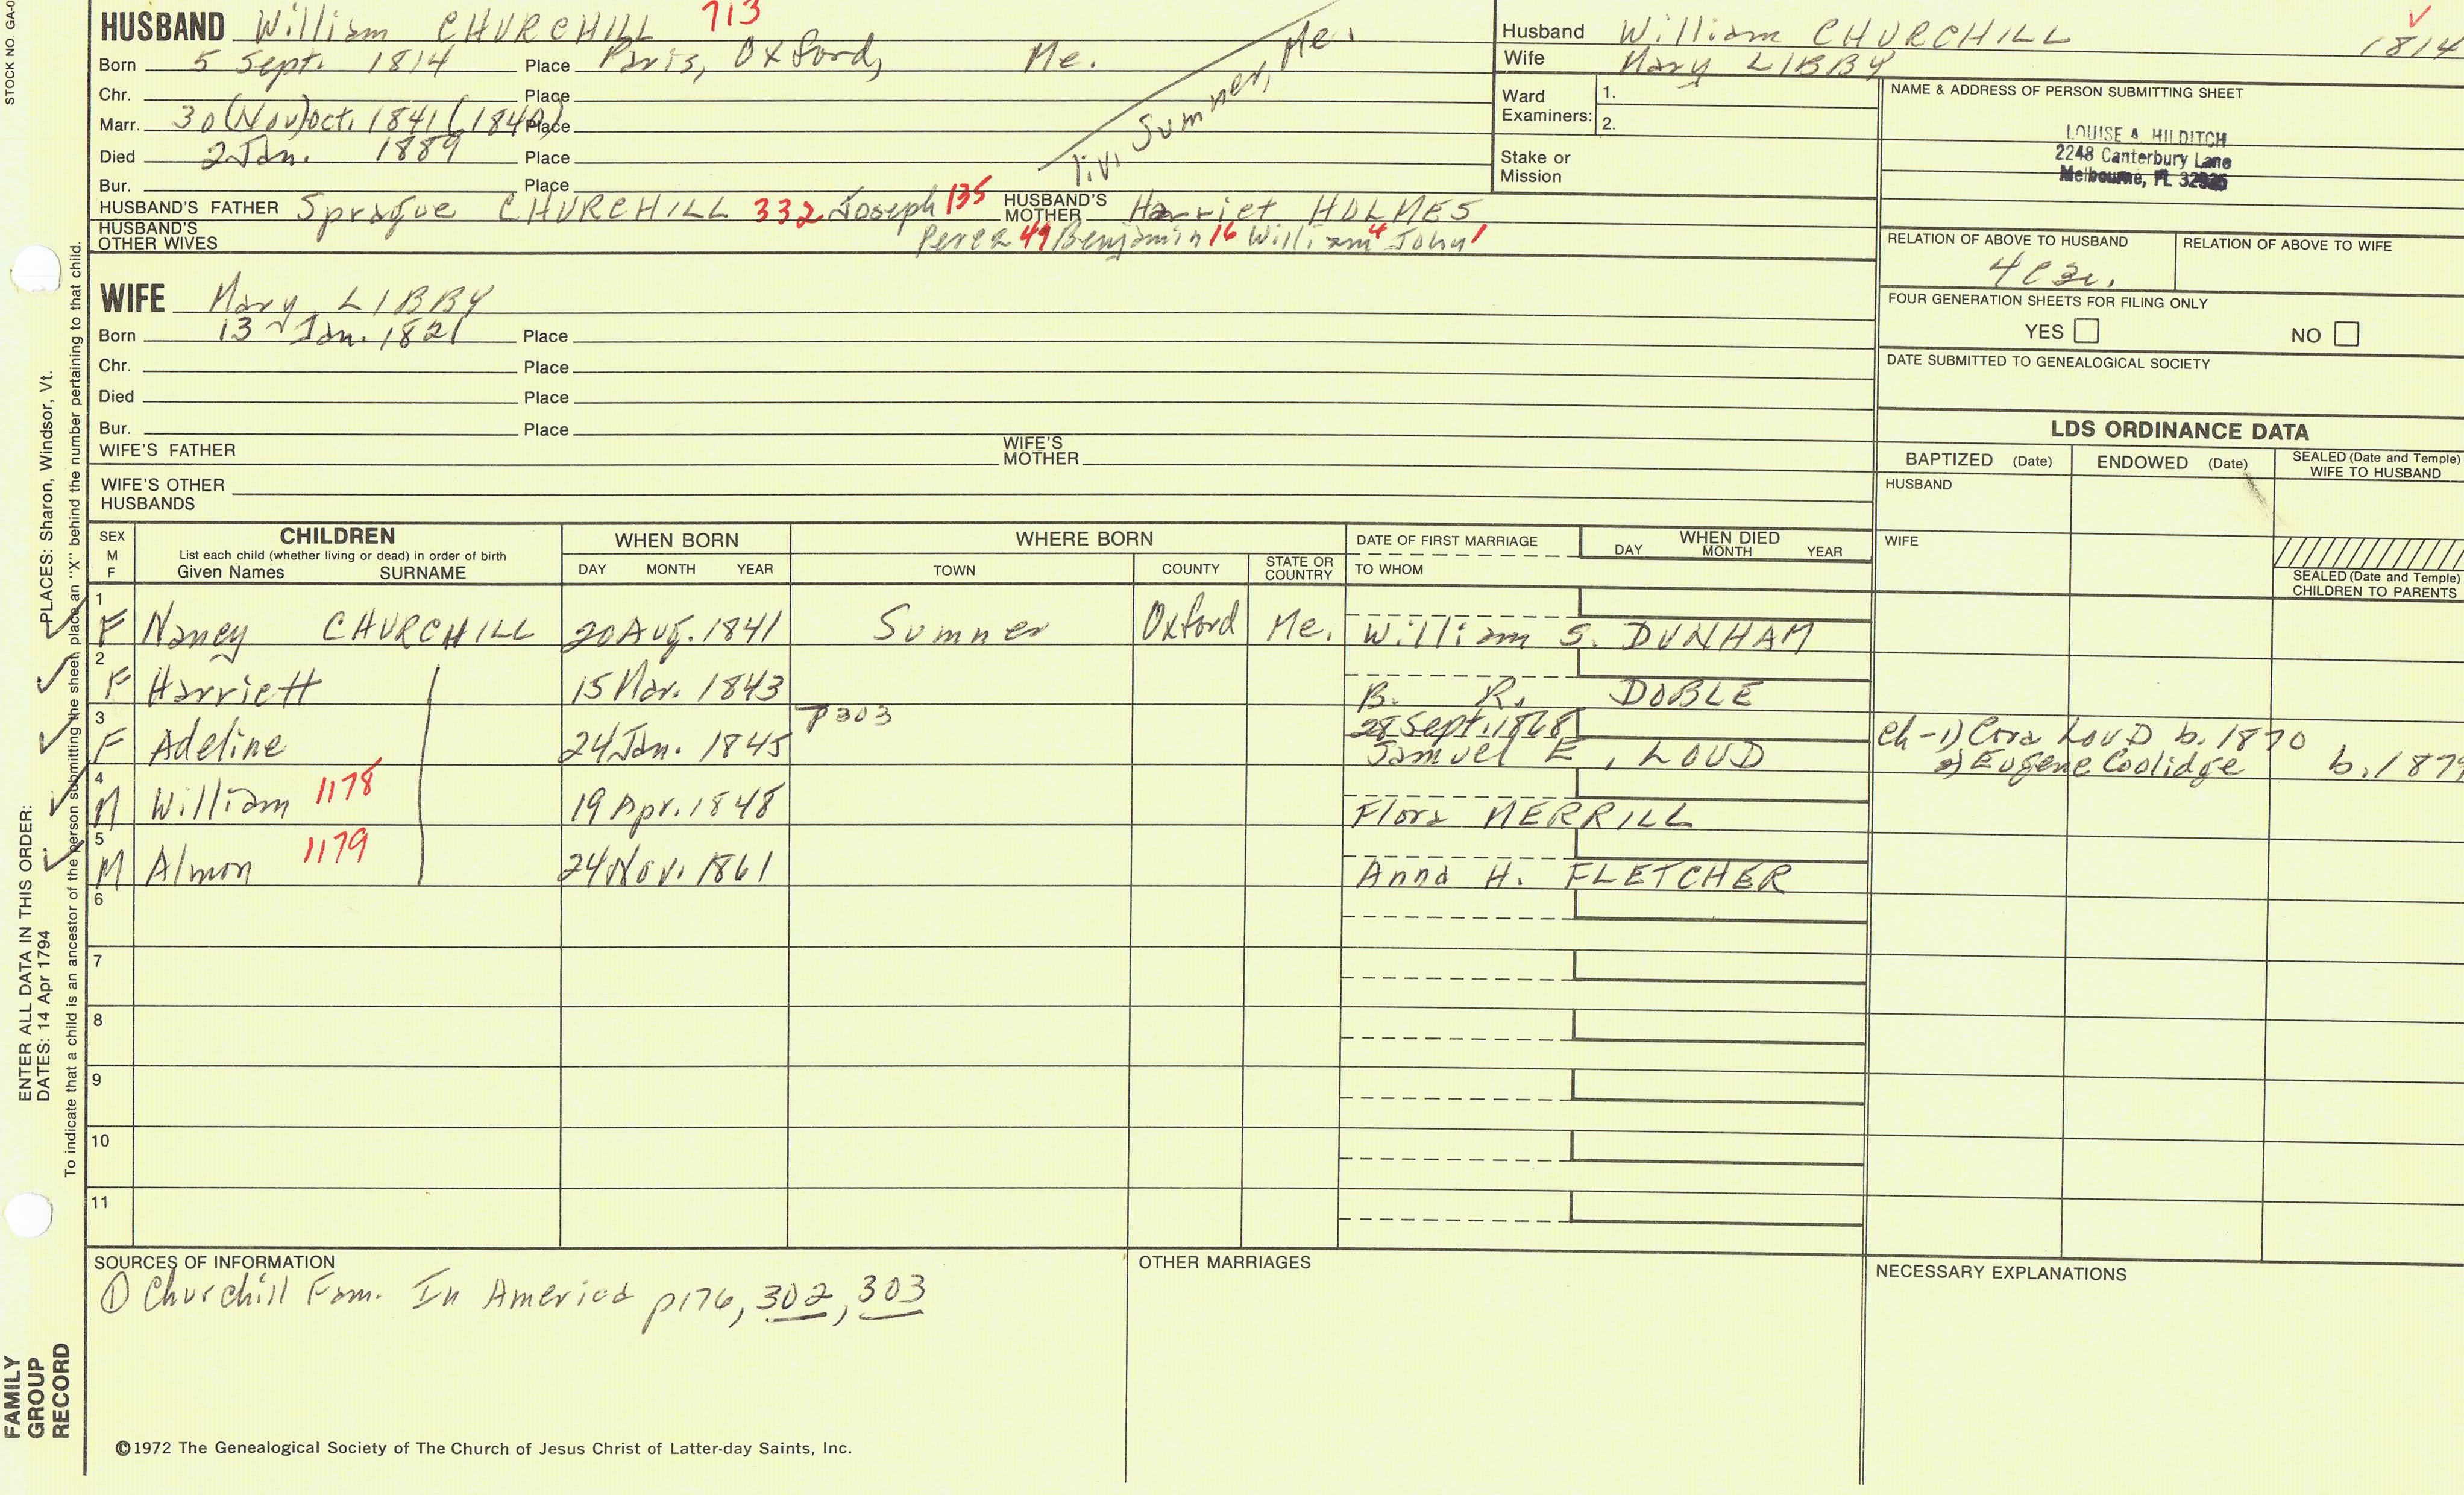 STOCK NO. GA-0
HUSBAND William CHURCHILL 713
Born 5 Sept. 1814 Place Paris, Oxford, Me.
Chr. Place
Marr. 30 (Nov) Oct. 1841 (1840) Place
Died 2 Jan. 1889 Place
Bur. Place
liv. Sumner, Me.
HUSBAND'S FATHER Sprague CHURCHILL 332 Joseph 135 HUSBAND'S MOTHER Harriet HOLMES
HUSBAND'S OTHER WIVES 49 Benjamin 16 William 4 John 1
Husband William CHURCHILL 1814
Wife Mary LIBBY
Ward Examiners: 1.
2.
Stake or Mission
NAME & ADDRESS OF PERSON SUBMITTING SHEET
LOUISE A. HILDITCH
2248 Canterbury Lane
Melbourne, FL 32935
RELATION OF ABOVE TO HUSBAND RELATION OF ABOVE TO WIFE
FOUR GENERATION SHEETS FOR FILING ONLY
YES NO
DATE SUBMITTED TO GENEALOGICAL SOCIETY
WIFE Mary LIBBY
Born 13 Jan. 1821 Place
Chr. Place
Died Place
Bur. Place
WIFE'S FATHER WIFE'S MOTHER
WIFE'S OTHER HUSBANDS
LDS ORDINANCE DATA
BAPTIZED (Date) ENDOWED (Date) SEALED (Date and Temple) WIFE TO HUSBAND
HUSBAND
WIFE
SEALED (Date and Temple) CHILDREN TO PARENTS
SEX M F CHILDREN List each child (whether living or dead) in order of birth Given Names SURNAME WHEN BORN DAY MONTH YEAR WHERE BORN TOWN COUNTY STATE OR COUNTRY DATE OF FIRST MARRIAGE TO WHOM WHEN DIED DAY MONTH YEAR
1 F Nancy CHURCHILL 20 Aug. 1841 Sumner Oxford Me. William S. DUNHAM
2 F Harriett 15 Mar. 1843 B. R. DOBLE
3 F Adeline 24 Jan. 1845 P303 28 Sept. 1868 Samuel E. LOUD
Ch-1) Cora LOUD b. 1870
2) Eugene Coolidge b. 1879
4 M William 1178 19 Apr. 1848 Flora MERRILL
5 M Almon 1179 24 Nov. 1861 Anna H. FLETCHER
6
7
8
9
10
11
SOURCES OF INFORMATION
① Churchill Fam. In America p176, 302, 303
OTHER MARRIAGES
NECESSARY EXPLANATIONS
©1972 The Genealogical Society of The Church of Jesus Christ of Latter-day Saints, Inc.
ENTER ALL DATA IN THIS ORDER:
DATES: 14 Apr 1794 PLACES: Sharon, Windsor, Vt.
To indicate that a child is an ancestor of the person submitting the sheet, place an "X" behind the number pertaining to that child.
FAMILY
GROUP
RECORD